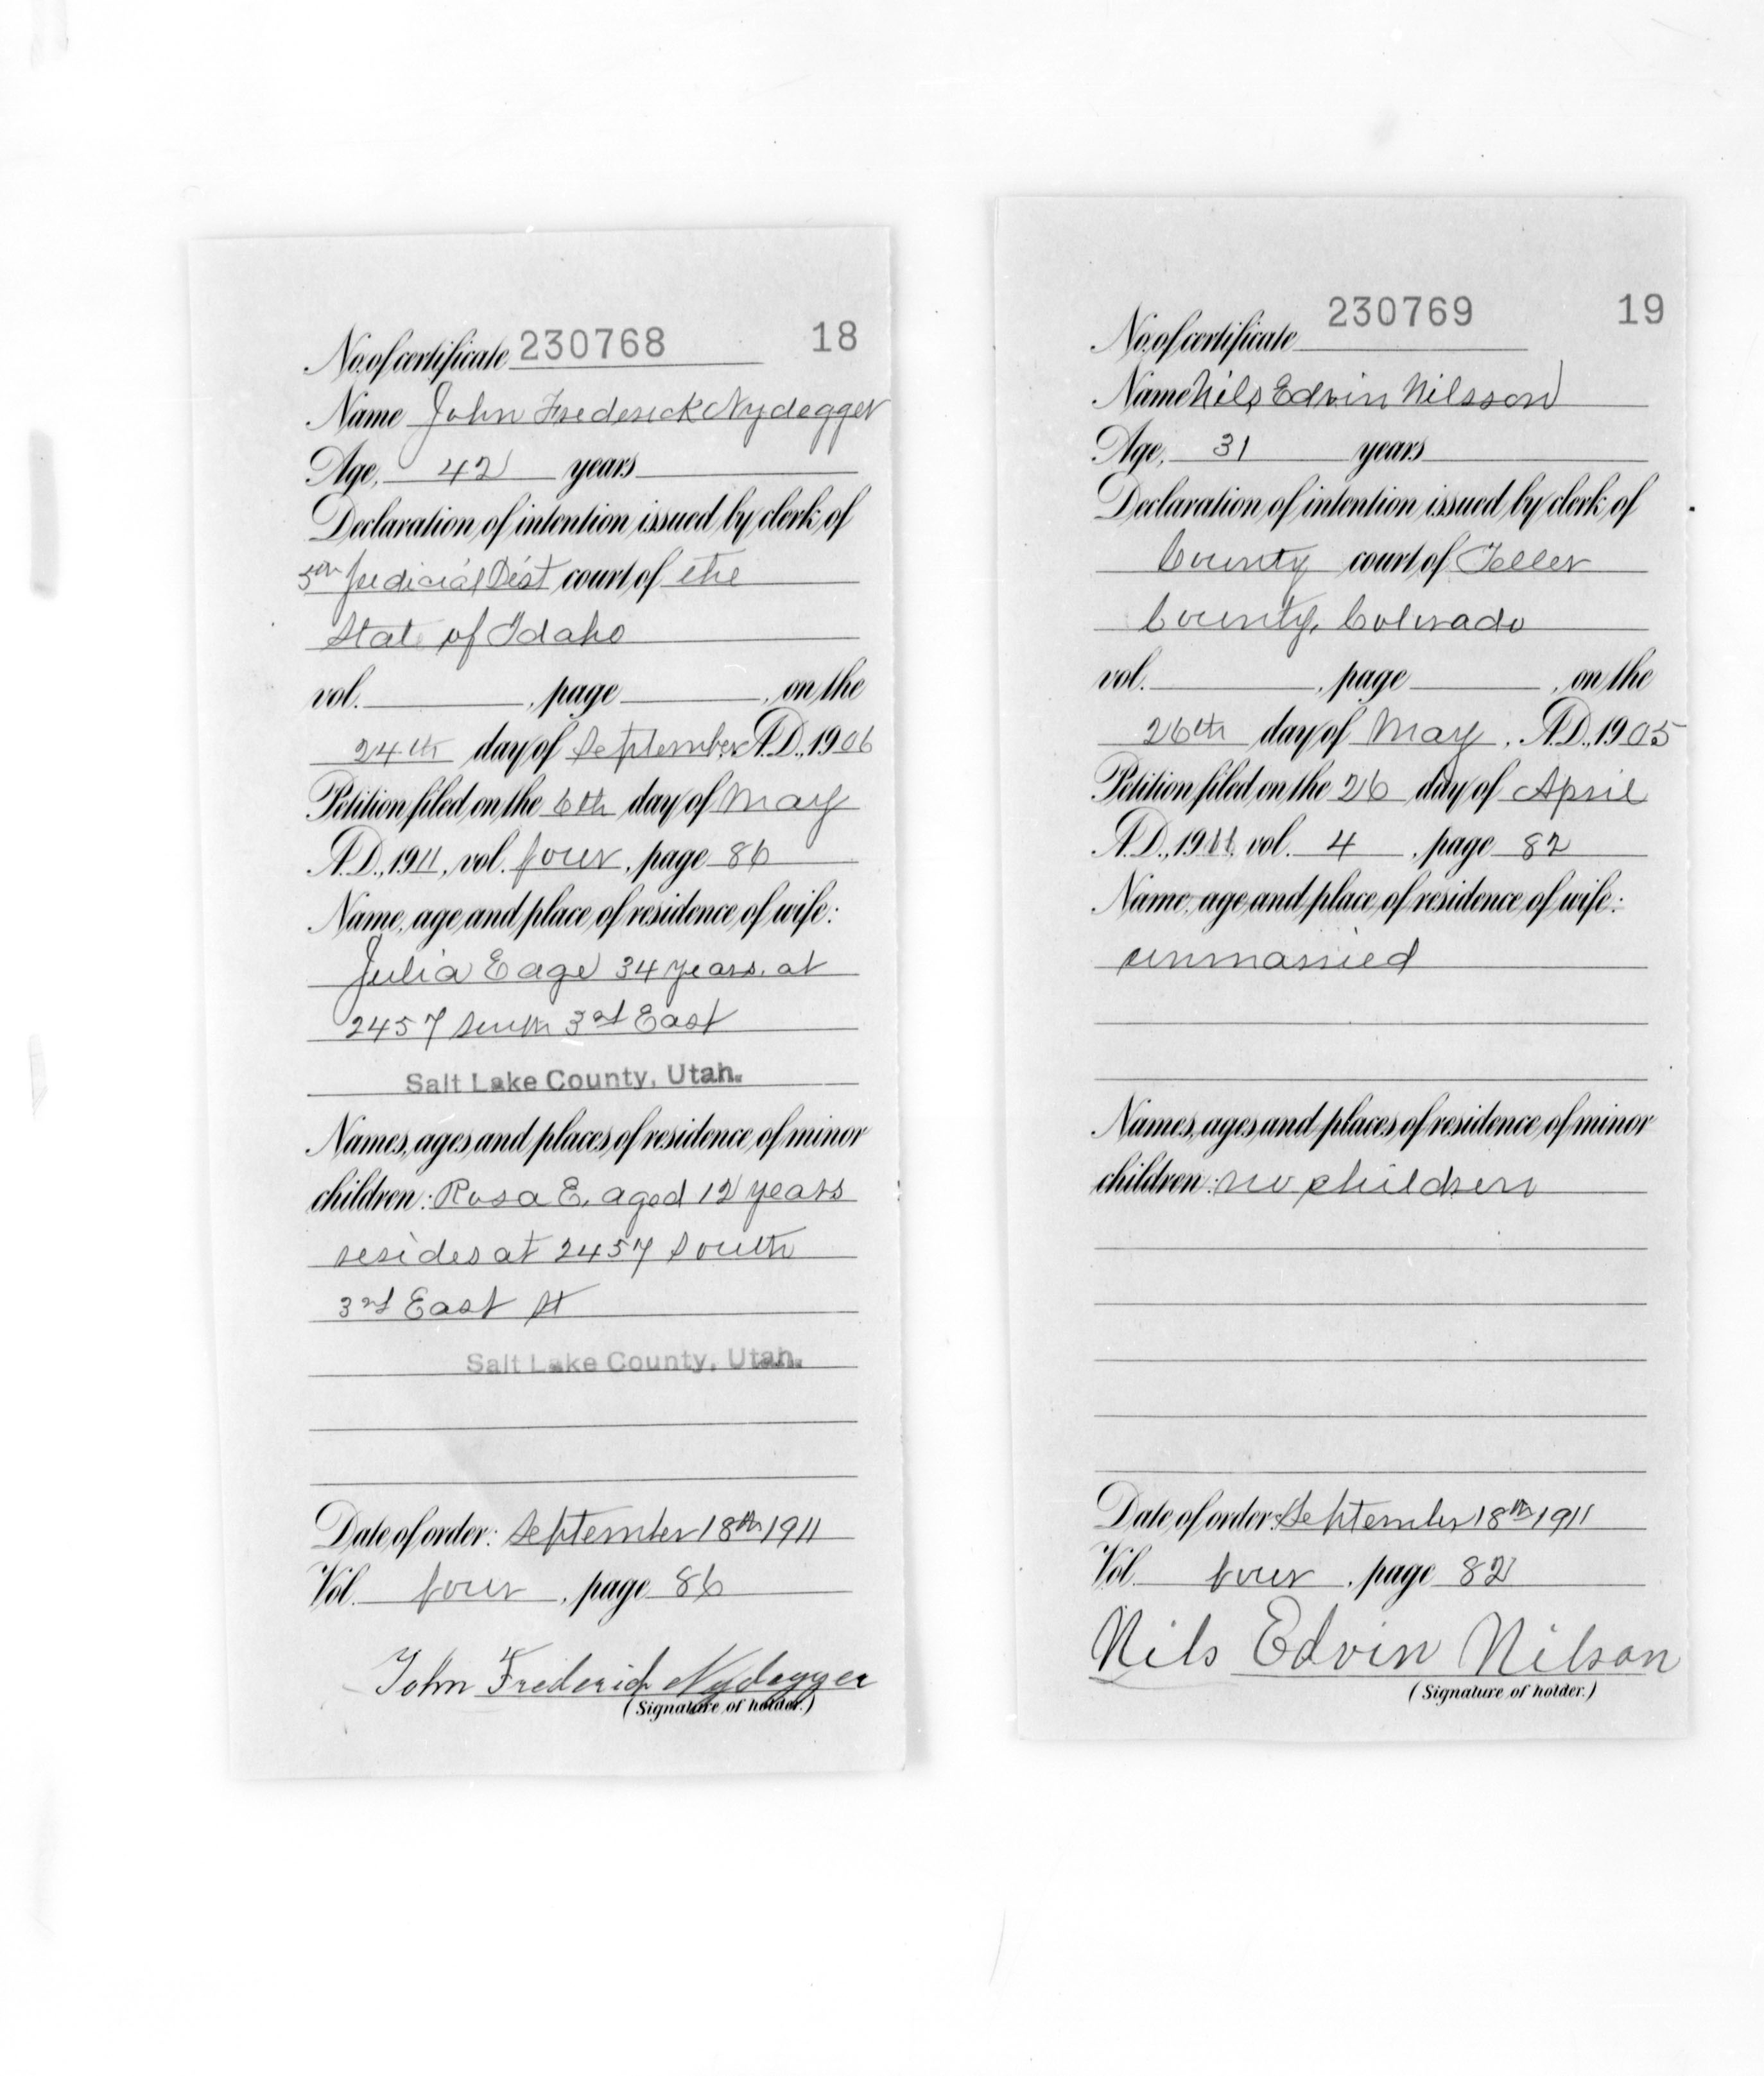 No. of certificate 230768 18
Name John Frederick Nydegger
Age, 42 years
Declaration of intention issued by clerk of
5th Judicial Dist court of the
State of Idaho
vol. , page , on the
24th day of September A.D., 1906
Petition filed on the 6th day of May
A.D., 1911, vol. four, page 86
Name, age and place of residence of wife:
Julia E age 34 years. at
2457 South 3rd East
Salt Lake County, Utah.
Names, ages and places of residence of minor
children: Rosa E. aged 12 years
resides at 2457 South
3rd East St
Salt Lake County, Utah.
Date of order: September 18th 1911
Vol. four, page 86
John Frederick Nydegger
(Signature of holder.)
230769 19
No. of certificate
Name Nils Edvin Nilsson
Age, 31 years
Declaration of intention issued by clerk of
County court of Teller
County, Colorado
vol. , page , on the
26th day of May, A.D., 1905
Petition filed on the 26 day of April
A.D., 1911, vol. 4, page 82
Name, age and place of residence of wife:
unmarried
Names, ages and places of residence of minor
children: no children
Date of order: September 18th 1911
Vol. four, page 82
Nils Edvin Nilson
(Signature of holder.)